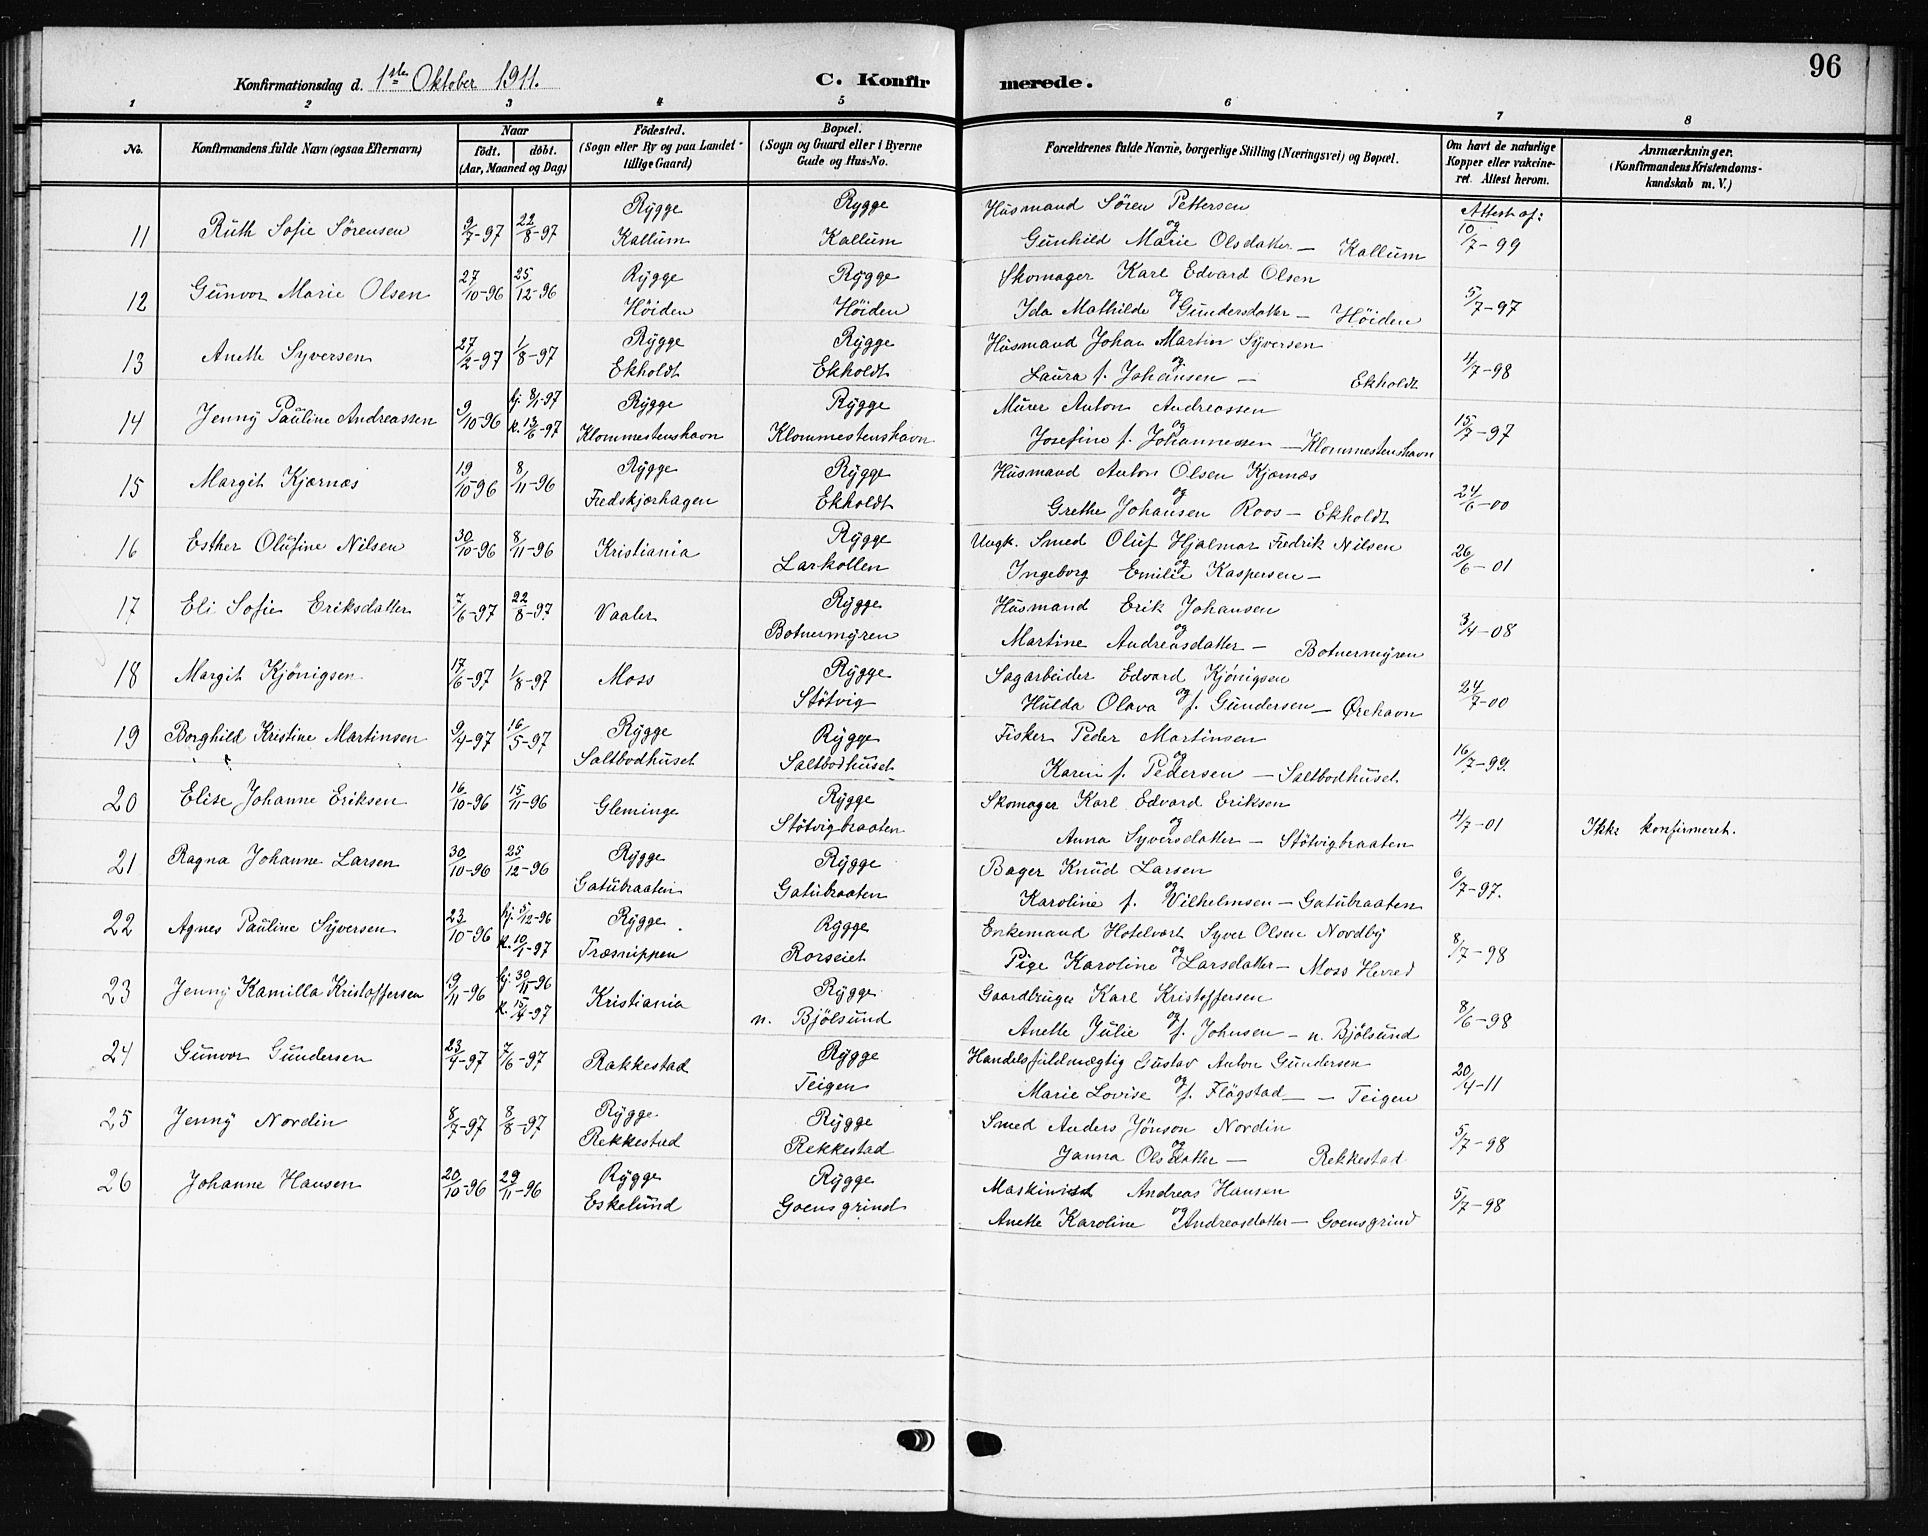 96
Konfirmationsdag d. 1ste Oktober 1911.
C. Konfirmerede.
1 2 3 4 5 6 7 8
No.
Konfirmandens fulde Navn (ogsaa Efternavn)
Naar
født. døbt.
(Aar, Maaned og Dag)
Födested.
(Sogn eller By og paa Landet tillige Gaard)
Bopæl.
(Sogn og Gaard eller i Byerne Gade og Hus-No.
Forældrenes fulde Navne, borgerlige Stilling (Næringsvei) og Bopæl.
Om havt de naturlige Kopper eller vakcineret. Attest herom.
Anmærkninger.
(Konfirmandens Kristendomskundskab m. V.)
11 Ruth Sofie Sörensen 9/7-97 22/8-97 Rygge Kallum Rygge Kallum Husmand Sören Pettersen og Gunhild Marie Olsdatter – Kallum Attest af: 10/7-99
12 Gunvor Marie Olsen 27/10-96 25/12-96 Rygge Höiden Rygge Höiden Skomager Karl Edvard Olsen og Ida Mathilde Gundersdatter – Höiden 5/7-97
13 Anette Syversen 27/2-97 1/8-97 Rygge Ekholdt Rygge Ekholdt Husmand Johan Martin Syversen og Laura f. Johansen – Ekholdt 4/7-98
14 Jenny Pauline Andreassen 9/10-96 hj. 8/1-97 k. 13/6-97 Rygge Klommestenshavn Rygge Klommestenshavn Murer Anton Andreassen og Josefine f. Johannessen – Klommestenshavn 15/7-97
15 Margit Kjærnæs 19/10-96 8/11-96 Rygge Fredskjærhagen Rygge Ekholdt Husmand Anton Olsen Kjærnæs og Grethe Johansen Roos – Ekholdt 24/6-00
16 Esther Olufine Nilsen 30/10-96 8/11-96 Kristiania Rygge Larkollen Ungk. Smed Oluf Hjalmar Fredrik Nilsen og Ingeborg Emilie Kaspersen – 26/6-01
17 Eli Sofie Eriksdatter 7/6-97 22/8-97 Vaaler Rygge Botnermyren Husmand Erik Johansen og Martine Andreasdatter – Botnermyren 3/4-08
18 Margit Kjönigsen 17/6-97 1/8-97 Moss Rygge Stötvig Sagarbeider Edvard Kjönigsen og Hulda Olava f. Gundersen – Ørehavn 24/7-00
19 Borghild Kristine Martinsen 9/4-97 16/5-97 Rygge Saltbodhuset Rygge Saltbodhuset Fisker Peder Martinsen og Karen f. Pedersen – Saltbodhuset 16/7-99.
20 Elise Johanne Eriksen 16/10-96 15/11-96 Gleminge Rygge Stötvigbraaten Skomager Karl Edvard Eriksen og Anna Syversdatter – Stötvigbraaten 4/7-01 Ikke konfirmeret.
21 Ragna Johanne Larsen 30/10-96 25/12-96 Rygge Gatubraaten Rygge Gatubraaten Bager Knud Larsen og Karoline f. Wilhelmsen – Gatubraaten 6/7-97.
22 Agnes Pauline Syversen 23/10-96 hj. 5/12-96 k. 10/1-97 Rygge Træsnippen Rygge Rorseiet Enkemand Hotelvært Syver Olsen Nordby og Pige Karoline Larsdatter – Moss Herred 8/7-98
23 Jenny Kamilla Kristoffersen 19/11-96 hj. 30/11-96 k. 15/4-97 Kristiania Rygge n. Bjölsund Gaardbruger Karl Kristoffersen og Anette Julie f. Johnsen – n. Bjölsund 8/6-98
24 Gunvor Gundersen 23/4-97 7/6-97 Rakkestad Rygge Teigen Handelsfuldmægtig Gustav Anton Gundersen og Marie Lovise f. Flögstad – Teigen 20/4-11
25 Jenny Nordin 8/7-97 8/8-97 Rygge Rekkestad Rygge Rekkestad Smed Anders Jönson Nordin og Janna Olsdatter – Rekkestad 5/7-98
26 Johanne Hansen 20/10-96 29/11-96 Rygge Eskelund Rygge Goensgrind Maskinist Andreas Hansen og Anette Karoline Andreasdatter – Goensgrind 5/7-98